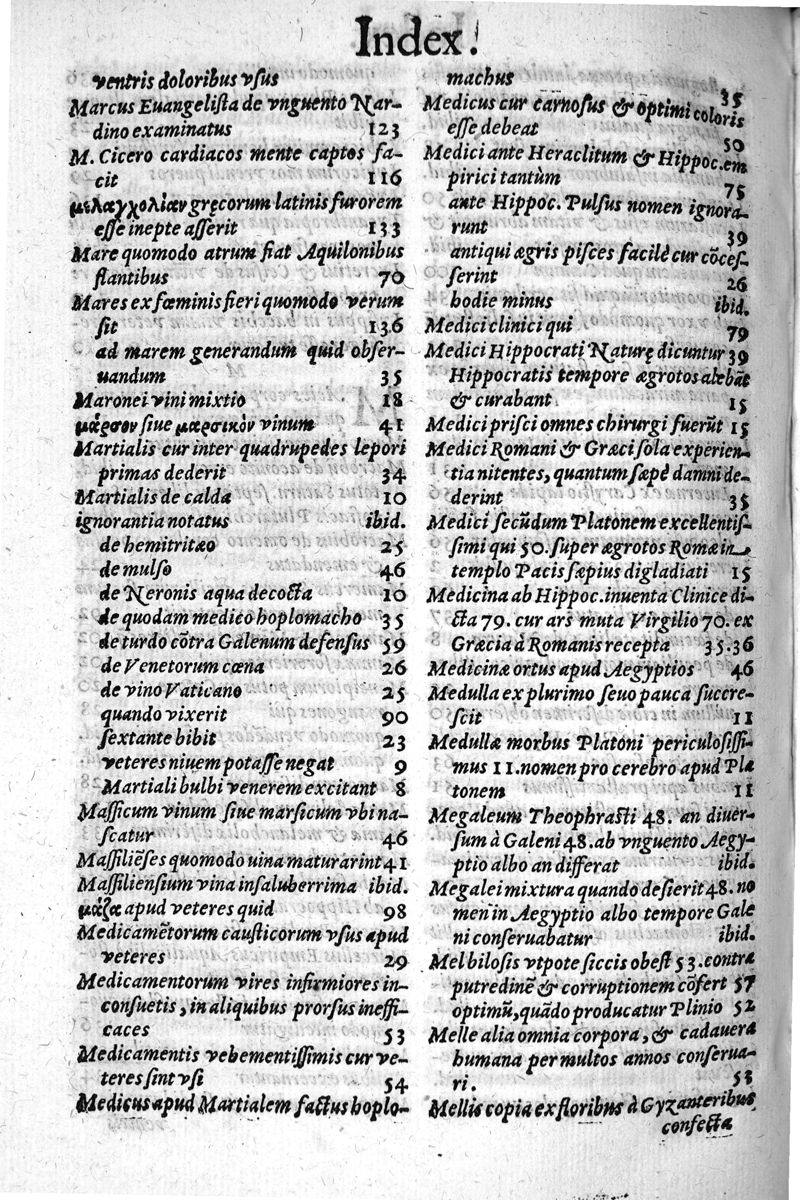 Index.
ventris doloribus vsus
Marcus Euangelista de vnguento Nar-
dino examinatus 123
M. Cicero cardiacos mente captos fa-
cit 116
μελαγχολίαν gręcorum latinis furorem
esse inepte asserit 133
Mare quomodo atrum fiat Aquilonibus
flantibus 70
Mares ex fœminis fieri quomodo verum
sit 136
ad marem generandum quid obser-
uandum 35
Maronei vini mixtio 18
μάρσον siue μαρσικὸν vinum 41
Martialis cur inter quadrupedes lepori
primas dederit 34
Martialis de calda 10
ignorantia notatus ibid.
de hemitritæo 25
de mulso 46
de Neronis aqua decocta 10
de quodam medico hoplomacho 35
de turdo cōtra Galenum defensus 59
de Venetorum cœna 26
de vino Vaticano 25
quando vixerit 90
sextante bibit 23
veteres niuem potasse negat 9
Martiali bulbi venerem excitant 8
Massicum vinum siue marsicum vbi na-
scatur 46
Massiliēses quomodo uina maturarint 41
Massiliensium vina insaluberrima ibid.
μάζα apud veteres quid 98
Medicamētorum causticorum vsus apud
veteres 29
Medicamentorum vires infirmiores in-
consuetis, in aliquibus prorsus ineffi-
caces 53
Medicamentis vehementissimis cur ve-
teres sint vsi 54
Medicus apud Martialem factus hoplo-
machus 35
Medicus cur carnosus & optimi coloris
esse debeat 50
Medici ante Heraclitum & Hippoc. em
pirici tantùm 75
ante Hippoc. Pulsus nomen ignora-
runt 39
antiqui ægris pisces facilè cur cōces-
serint 26
hodie minus ibid.
Medici clinici qui 79
Medici Hippocrati Naturę dicuntur 39
Hippocratis tempore ægrotos alebāt
& curabant 15
Medici prisci omnes chirurgi fuerūt 15
Medici Romani & Græci sola experien-
tia nitentes, quantum sæpè damni de-
derint 35
Medici secūdum Platonem excellentis-
simi qui 50. super ægrotos Romæ in
templo Pacis sæpius digladiati 15
Medicina ab Hippoc. inuenta Clinice di-
cta 79. cur ars muta Virgilio 70. ex
Græcia à Romanis recepta 35.36
Medicinæ ortus apud Aegyptios 46
Medulla ex plurimo seuo pauca succre-
scit 11
Medullæ morbus Platoni periculosissi-
mus 11. nomen pro cerebro apud Pla
tonem 11
Megaleum Theophrasti 48. an diuer-
sum à Galeni 48. ab vnguento Aegy-
ptio albo an differat ibid.
Megalei mixtura quando desierit 48. no
men in Aegyptio albo tempore Gale
ni conseruabatur ibid.
Mel biliosis vtpote siccis obest 53. contra
putredinē & corruptionem cōfert 57
optimū, quādo producatur Plinio 52
Melle alia omnia corpora, & cadauera
humana per multos annos conserua-
ri. 53
Mellis copia ex floribus à Gyzanteribus
confecta